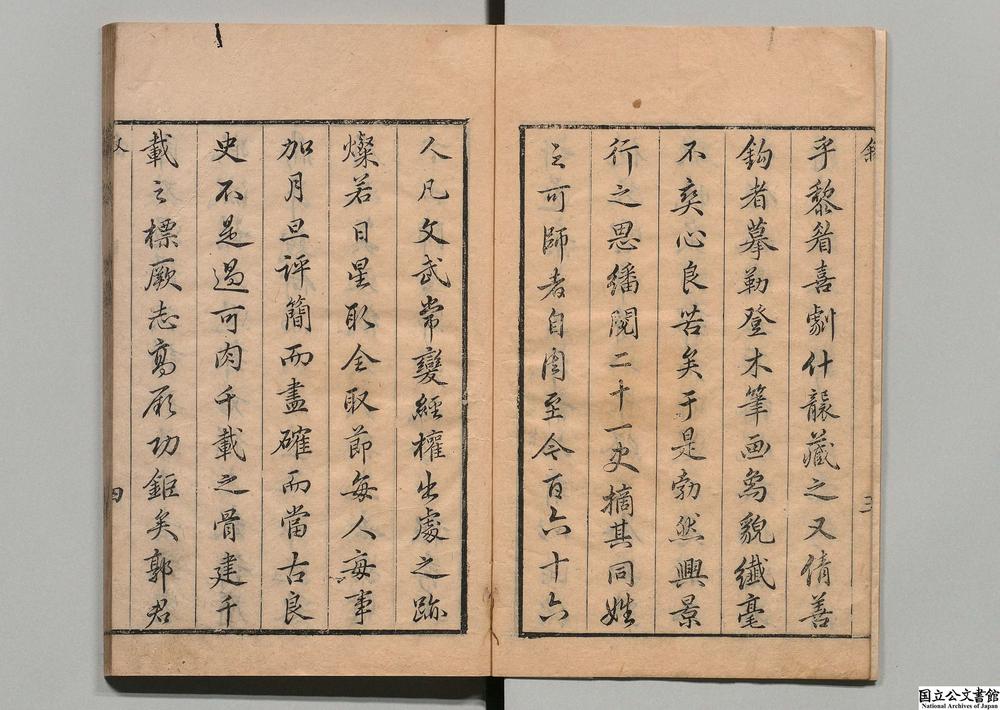 乎黎眷喜劇什襲藏之又倩善
鈎者摹勒登木筆画為貌纖毫
不爽心良苦矣于是勃然興景
行之思繙閱二十一史摘其同姓
之可師者自周至今百六十六
人凡文武常變經權出處之跡
燦若日星取全取節每人每事
加月旦評簡而盡確而當古良
史不是過可肉千載之骨建千
載之標厥志高厥功鉅矣郭君
三
四
国立公文書館
National Archives of Japan